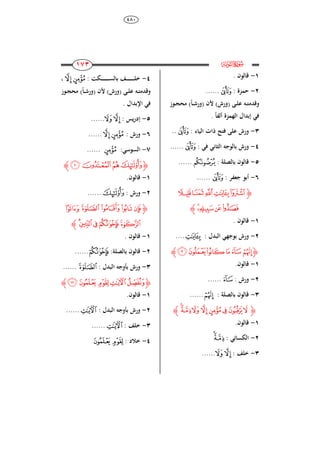 ٤٨٠
١٧٣
١- قالون .
٢- حمزة : وَتَأْبَىٰ ......
وقدمته على (ورش) لأن (ورشاً) محجوز
في إبدال الهمزة ألفاً .
٣- ورش على فتح ذات الياء : وَتَأْبَىٰ ..
٤- ورش بالوجه الثاني في : وَتَأْبَىٰ ......
٥- قالون بالصلة : يُرْضُونَكُمْ ......
٦- أبو جعفر : وَتَأْبَىٰ ......
﴿ ٱشْتَرَوْا۟ بِـَٔايَـٰتِ ٱللَّهِ ثَمَنًا قَلِيلًا
فَصَدُّوا۟ عَن سَبِيلِهِۦٓ ﴾
١- قالون .
٢- ورش بوجهي البدل : بِـَٔايَـٰتِ......
﴿ إِنَّهُمْ سَآءَ مَا كَانُوا۟ يَعْمَلُونَ ٩ ﴾
١- قالون.
٢- ورش : سَآءَ ......
٣- قالون بالصلة : إِنَّهُمْ ......
﴿ لَا يَرْقُبُونَ فِى مُؤْمِنٍ إِلًّا وَلَا ذِمَّةً ﴾
١- قالون.
٢- الكسائي : ذِمَّةً ......
٣- خلف : إِلًّا وَلَا ......
٤- خلف بالسكت : مُؤْمِنٍ إِلًّا ،
وقدمته على (ورش) لأن (ورشاً) محجوز
في الإبدال .
٥- إدريس : إِلًّا وَلَا......
٦- ورش : مُؤْمِنٍ إِلًّا ......
٧- السوسي: مُؤْمِنٍ ......
﴿ وَأُو۟لَـٰٓئِكَ هُمُ ٱلْمُعْتَدُونَ ١٠ ﴾
١- قالون.
٢- ورش : وَأُو۟لَـٰٓئِكَ......
﴿ فَإِن تَابُوا۟ وَأَقَامُوا۟ ٱلصَّلَوٰةَ وَءَاتَوُا۟
ٱلزَّكَوٰةَ فَإِخْوَٰنُكُمْ فِى ٱلدِّينِ ﴾
١- قالون .
٢- قالون بالصلة: فَإِخْوَٰنُكُمْ......
٣- ورش بأوجه البدل : ٱلصَّلَوٰةَ ......
﴿ وَنُفَصِّلُ ٱلْـَٔايَـٰتِ لِقَوْمٍ يَعْلَمُونَ ١١ ﴾
١- قالون.
٢- ورش بأوجه البدل : ٱلْـَٔايَـٰتِ ......
٣- خلف : ٱلْـَٔايَـٰتِ ......
٤- خلاد : لِقَوْمٍ يَعْلَمُونَ ......